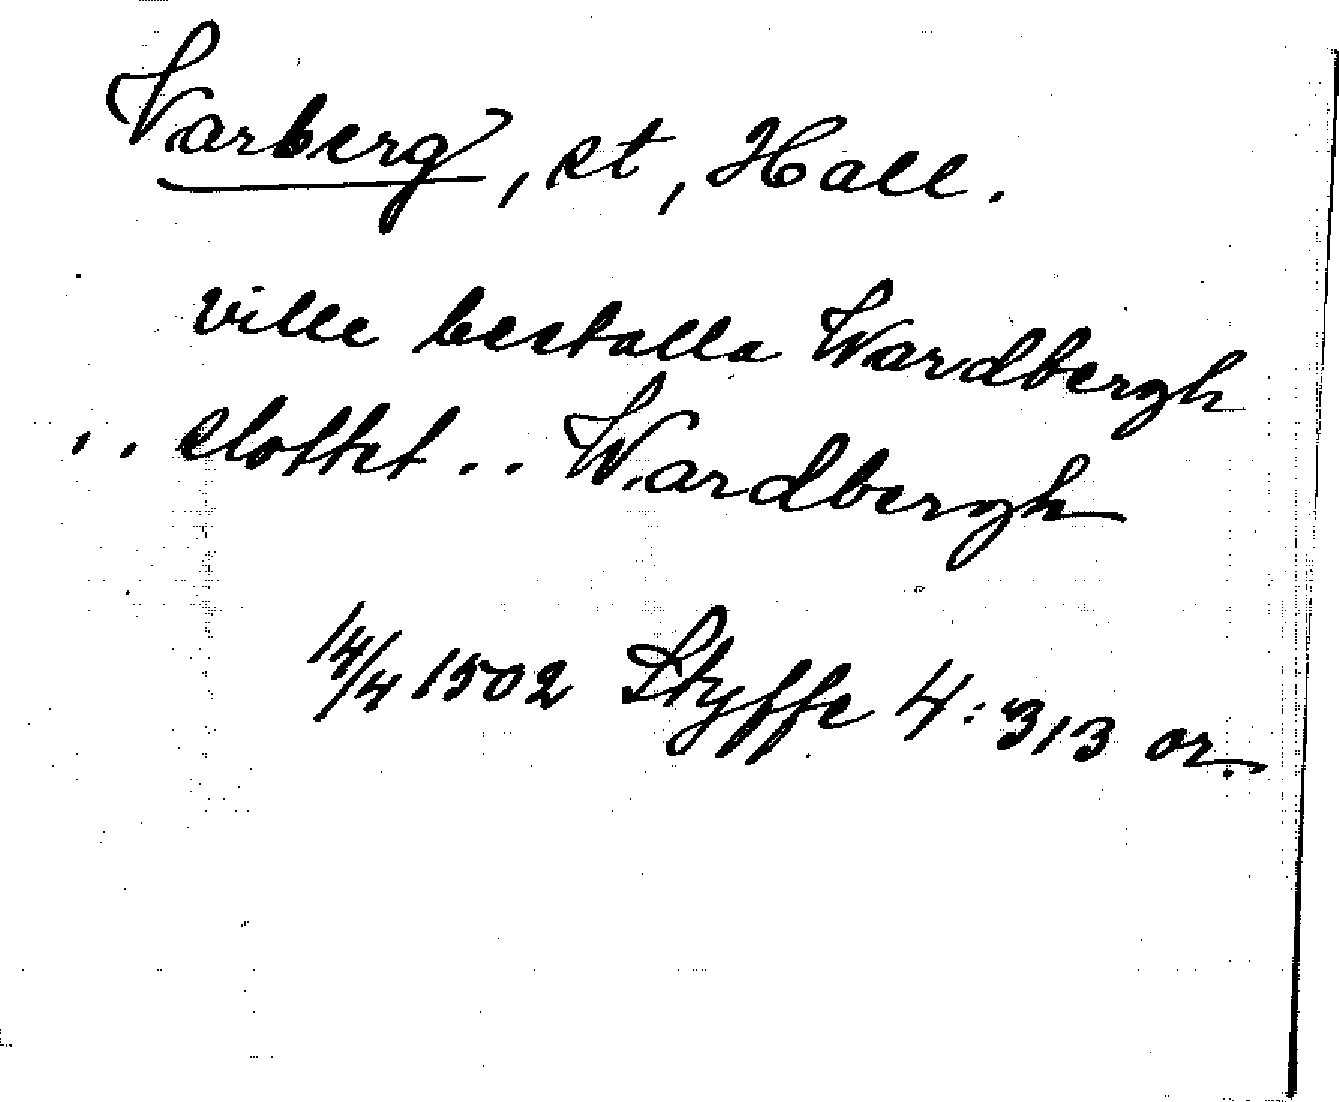 Varberg, st, Hall.
ville bestalla Wardbergh
.. slottet .. Wardbergh
14/4 1502 Styffe 4:313 or.